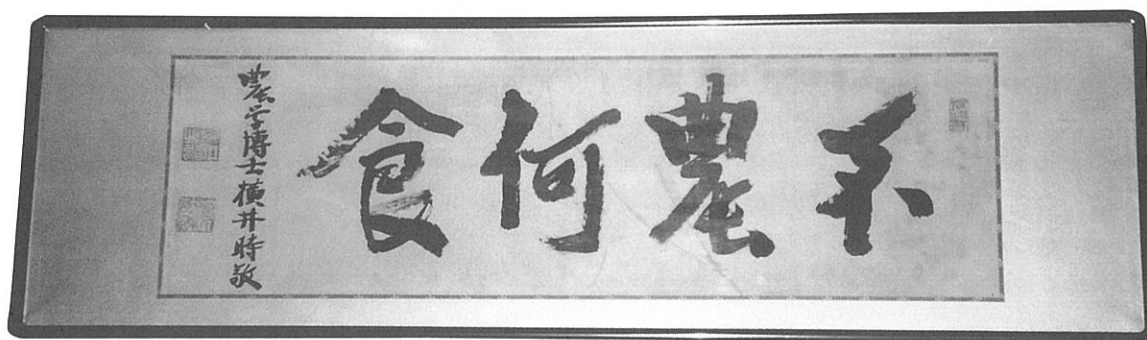 不農何食
農学博士橫井時敬